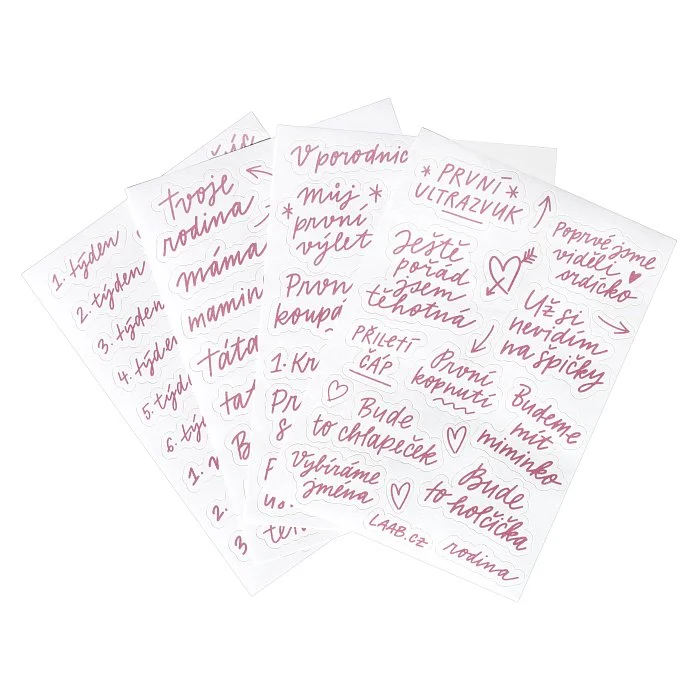 1. týden
2. týden
3. týden
4. týden
5. týd
6. tý
1.
2.
3
tvoje
rodina
máma
mamin
táta
ta
B
V porodnic
* můj *
první
výlet
První
koupá
1. Kr
Pr
s
* PRVNÍ *
ULTRAZVUK
Poprvé jsme
viděli
srdíčko
Ještě
pořád
jsem
těhotná
Už si
nevidím
na špičky
PŘILETÍ
ČÁP
První
kopnutí
Budeme
mít
miminko
Bude
to chlapeček
Vybíráme
jména
Bude
to holčička
LAAB.CZ
rodina